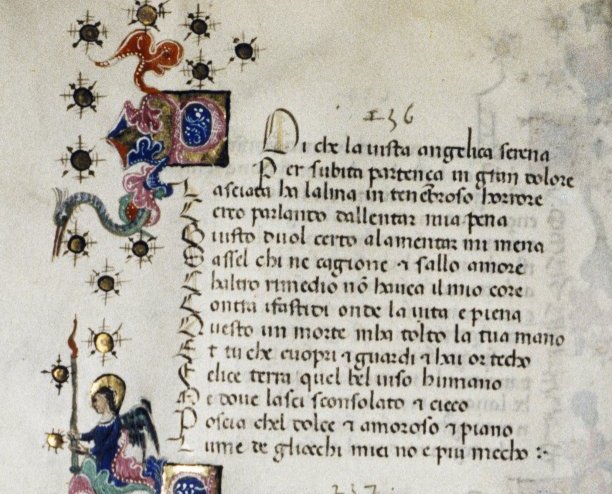 236
POi che la uista angelica serena
Per subita partenca in gran dolore
Lasciata ha lalma in tenebroso horrore
Cerco parlando dallentar mia pena
Giusto duol certo alamentar mi mena
Sassel chi ne cagione & sallo amore
Chaltro rimedio nõ hauea il mio core
Contra ifastidi onde la uita e piena
Questo un morte mha tolto la tua mano
Et tu che cuopri & guardi & hai or techo
Felice terra quel bel uiso humano
Me doue lasci sconsolato & cieco
Poscia chel dolce & amoroso & piano
Lume de gliocchi miei no e piu mecho :~
237